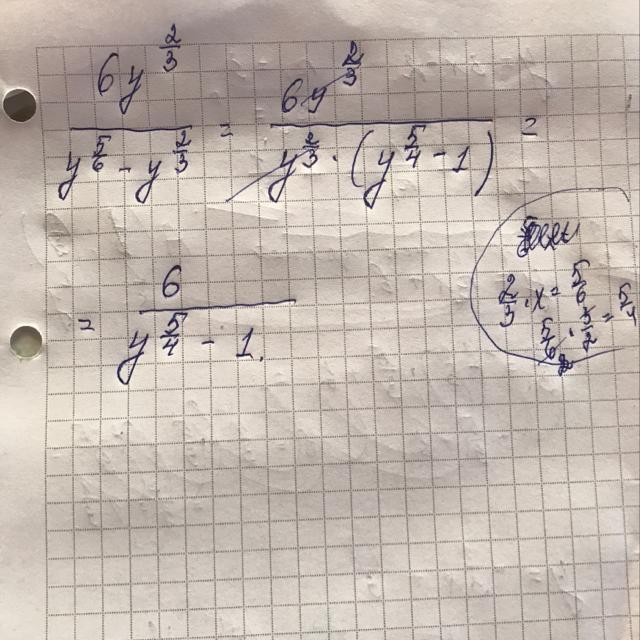 6y^(2/3) / (y^(5/6) - y^(2/3)) = 6y^(2/3) / (y^(2/3) · (y^(5/4) - 1)) =
= 6 / (y^(5/4) - 1).
2/3 · x = 5/6
5/6 · 3/2 = 5/4